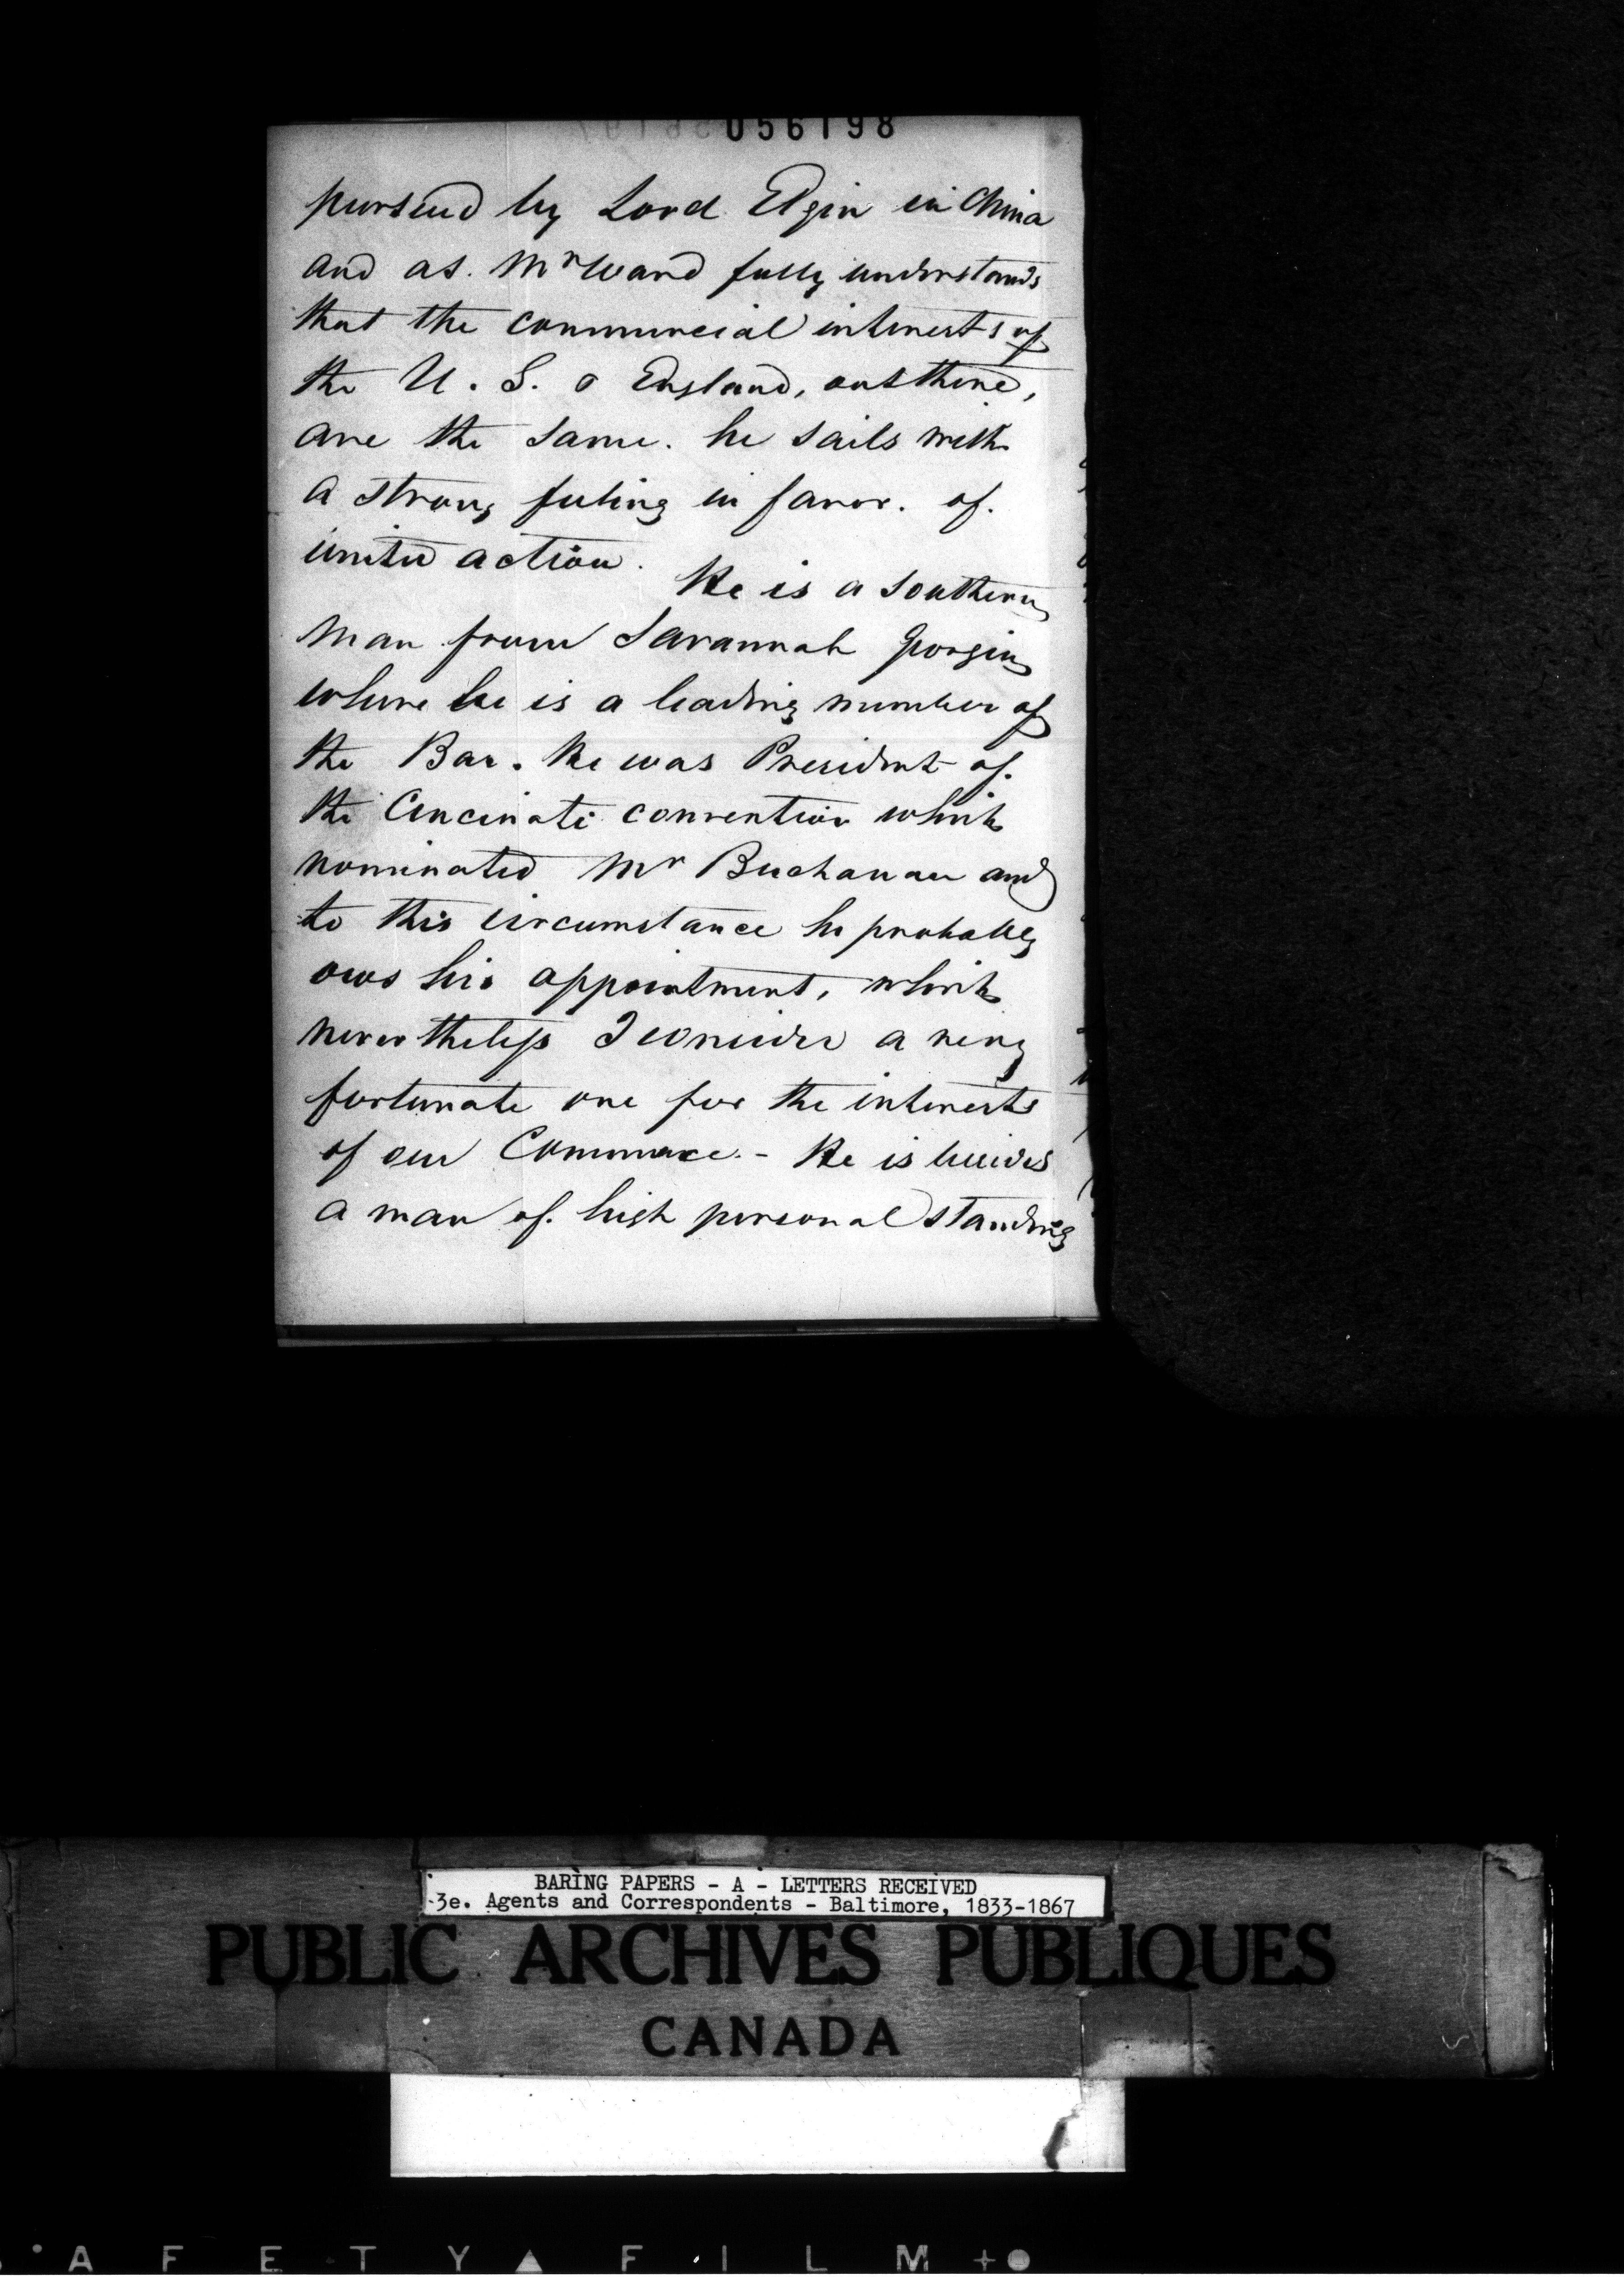 056198
pursued by Lord Elgin in China
and as. Mr Ward fully understands
that the commercial interests of
the U. S. & England, out there,
are the same. he sails with
a strong feeling in favor. of.
united action.
He is a southern
man from Savannah Georgia
where he is a leading member of
the Bar. He was President of.
the Cincinati convention which
nominated Mr Buchanan and
to this circumstance he probably
ows his appointment, which
nevertheless I consider a very
fortunate one for the interests
of our Commerce. - He is besides
a man of. high personal standing
BARING PAPERS - A - LETTERS RECEIVED
3e. Agents and Correspondents - Baltimore, 1833-1867
PUBLIC ARCHIVES PUBLIQUES
CANADA
S A F E T Y ▲ F I L M +●